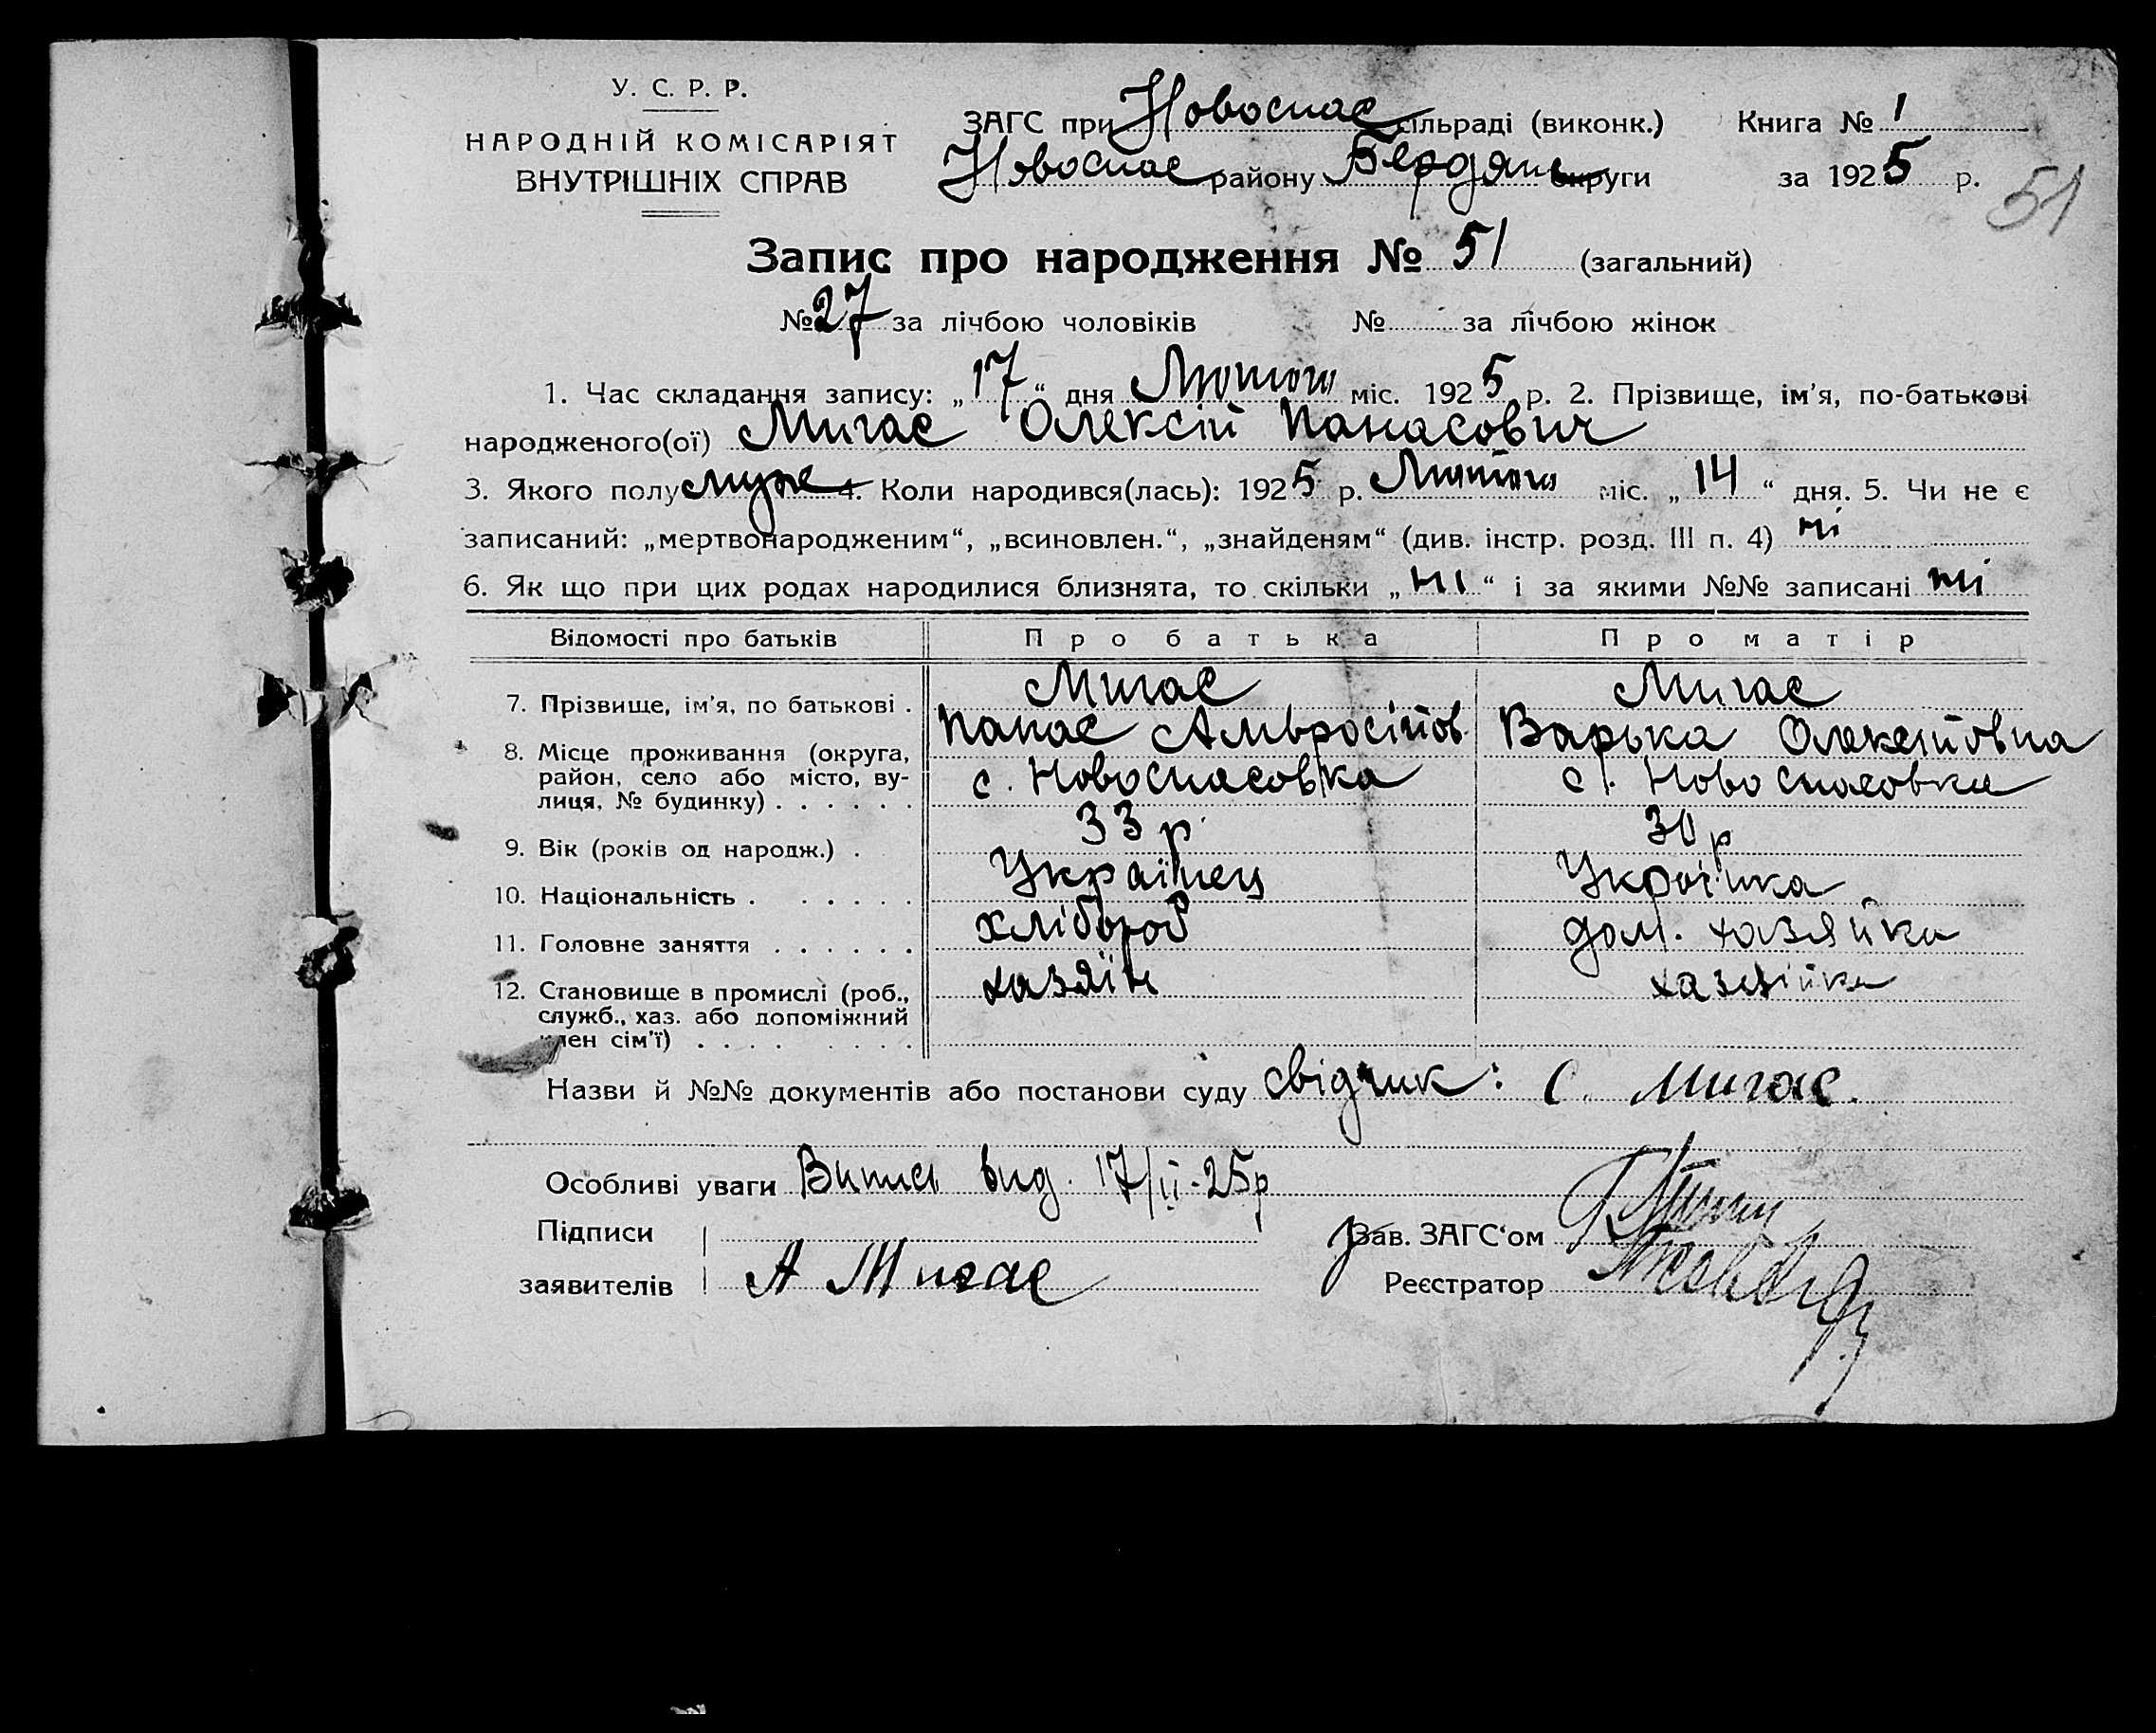 У. С. Р. Р.
НАРОДНІЙ КОМІСАРІЯТ
ВНУТРІШНІХ СПРАВ
ЗАГС при Новоспас сільраді (виконк.) Книга № 1
Новоспас району Бердянь округи за 1925 р.
51
Запис про народження № 51 (загальний)
№ 27 за лічбою чоловіків № за лічбою жінок
1. Час складання запису: „17“ дня Лютого міс. 1925 р. 2. Прізвище, ім'я, по-батькові
народженого(ої) Мигас Олексій Панасович
3. Якого полу муж 4. Коли народився(лась): 1925 р. Лютого міс. „14“ дня. 5. Чи не є
записаний: „мертвонародженим“, „всиновлен.“, „знайденям“ (див. інстр. розд. III п. 4) ні
6. Як що при цих родах народилися близнята, то скільки „ні“ і за якими №№ записані ні
Відомості про батьків Про батька Про матір
7. Прізвище, ім'я, по батькові . Мигас Мигас
Панас Амвросійов. Варька Олексійовна
8. Місце проживання (округа,
район, село або місто, ву-
лиця, № будинку) . . . . . . с. Новоспасовка с. Новоспасовка
9. Вік (років од народж.) . 33 р. 30 р
10. Національність . . . . . . Українець Українка
11. Головне заняття . . . . . . хлібороб дом. хазяйка
12. Становище в промислі (роб.,
служб., хаз. або допоміжний
член сім'ї) . . . . . . . . хазяїн хазяйка
Назви й №№ документів або постанови суду свідчик: С. Мигас.
Особливі уваги Випись вид. 17/II-25р
Підписи Зав. ЗАГС'ом
заявителів А Мигас Реєстратор